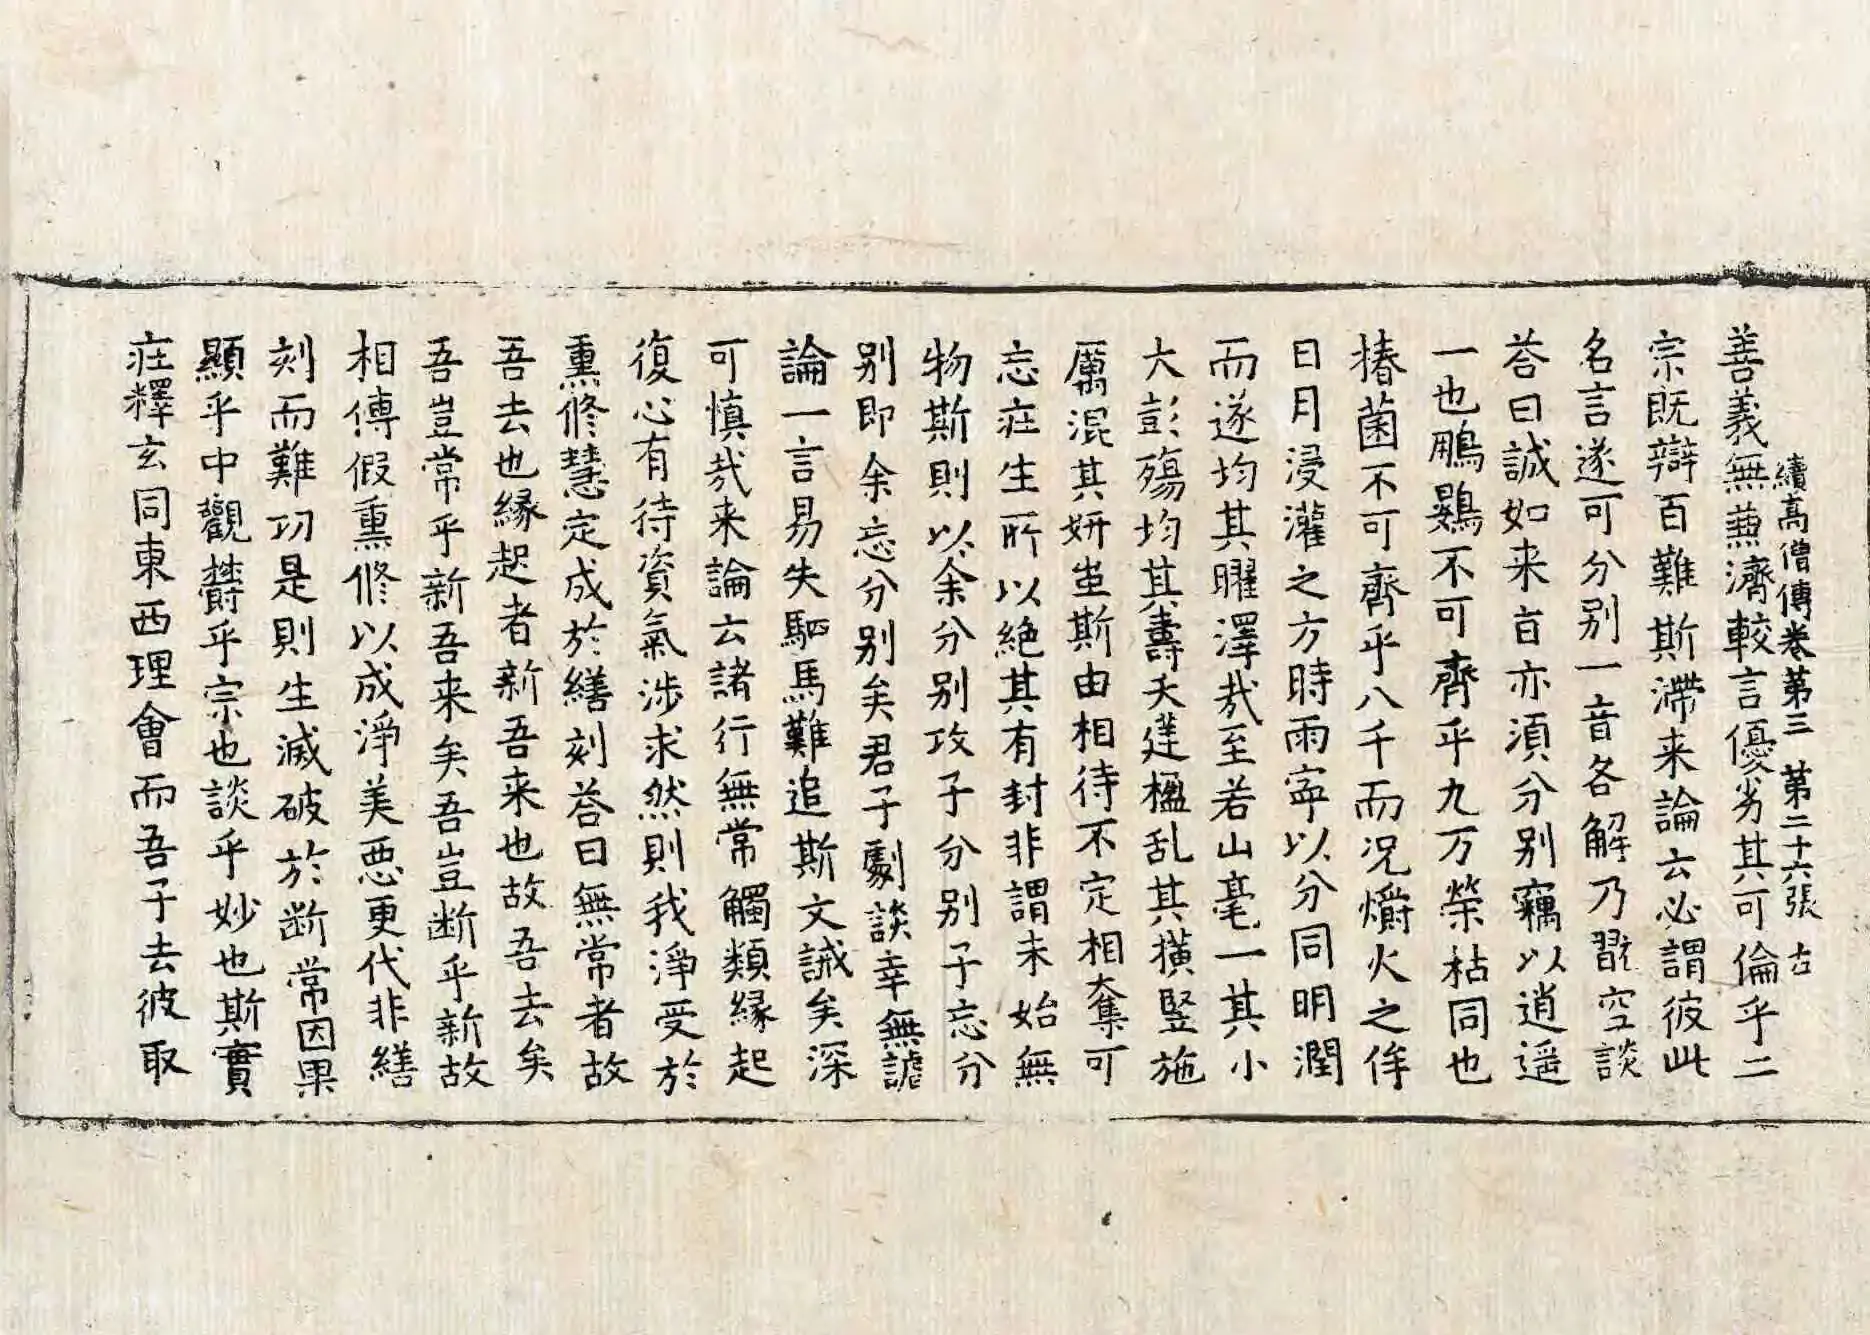 善義無無濟較言優劣其可倫乎二
續高僧傳卷第三 第二十六張 古
宗既辯百難斯滯来論云必謂彼此
名言遂可分别一音各解乃翫空談
荅曰誠如来旨亦須分别竊以逍遥
一也鵬鷃不可齊乎九万榮枯同也
椿菌不可齊乎八千而况爝火之侔
日月浸灌之方時雨寜以分同明潤
而遂均其曜澤㦲至若山毫一其小
大彭殤均其壽夭莛楹乱其横竪施
厲混其妍蚩斯由相待不定相奪可
忘莊生所以絶其有封非謂未始無
物斯則以余分别攻子分别子忘分
别即余忘分别矣君子劇談幸無謔
論一言易失駟馬難追斯文誡矣深
可慎㦲来論云諸行無常觸類縁起
復心有待資氣涉求然則我淨受於
熏修慧定成於繕刻荅曰無常者故
吾去也縁起者新吾来也故吾去矣
吾豈常乎新吾来矣吾豈断乎新故
相傳假熏修以成淨美惡更代非繕
刻而難功是則生滅破於断常因果
顯乎中觀欝乎宗也談乎妙也斯實
莊釋玄同東西理會而吾子去彼取